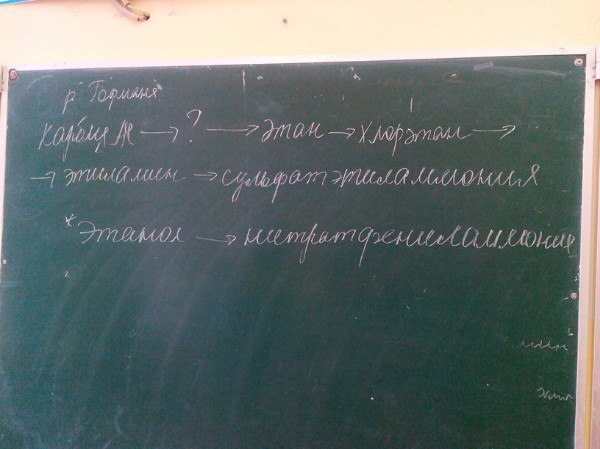 р Гофмана
Карбид Al → ? → этан → хлорэтан →
→ этиламин → сульфат этиламмония
* Этанол → нитрат фениламмония